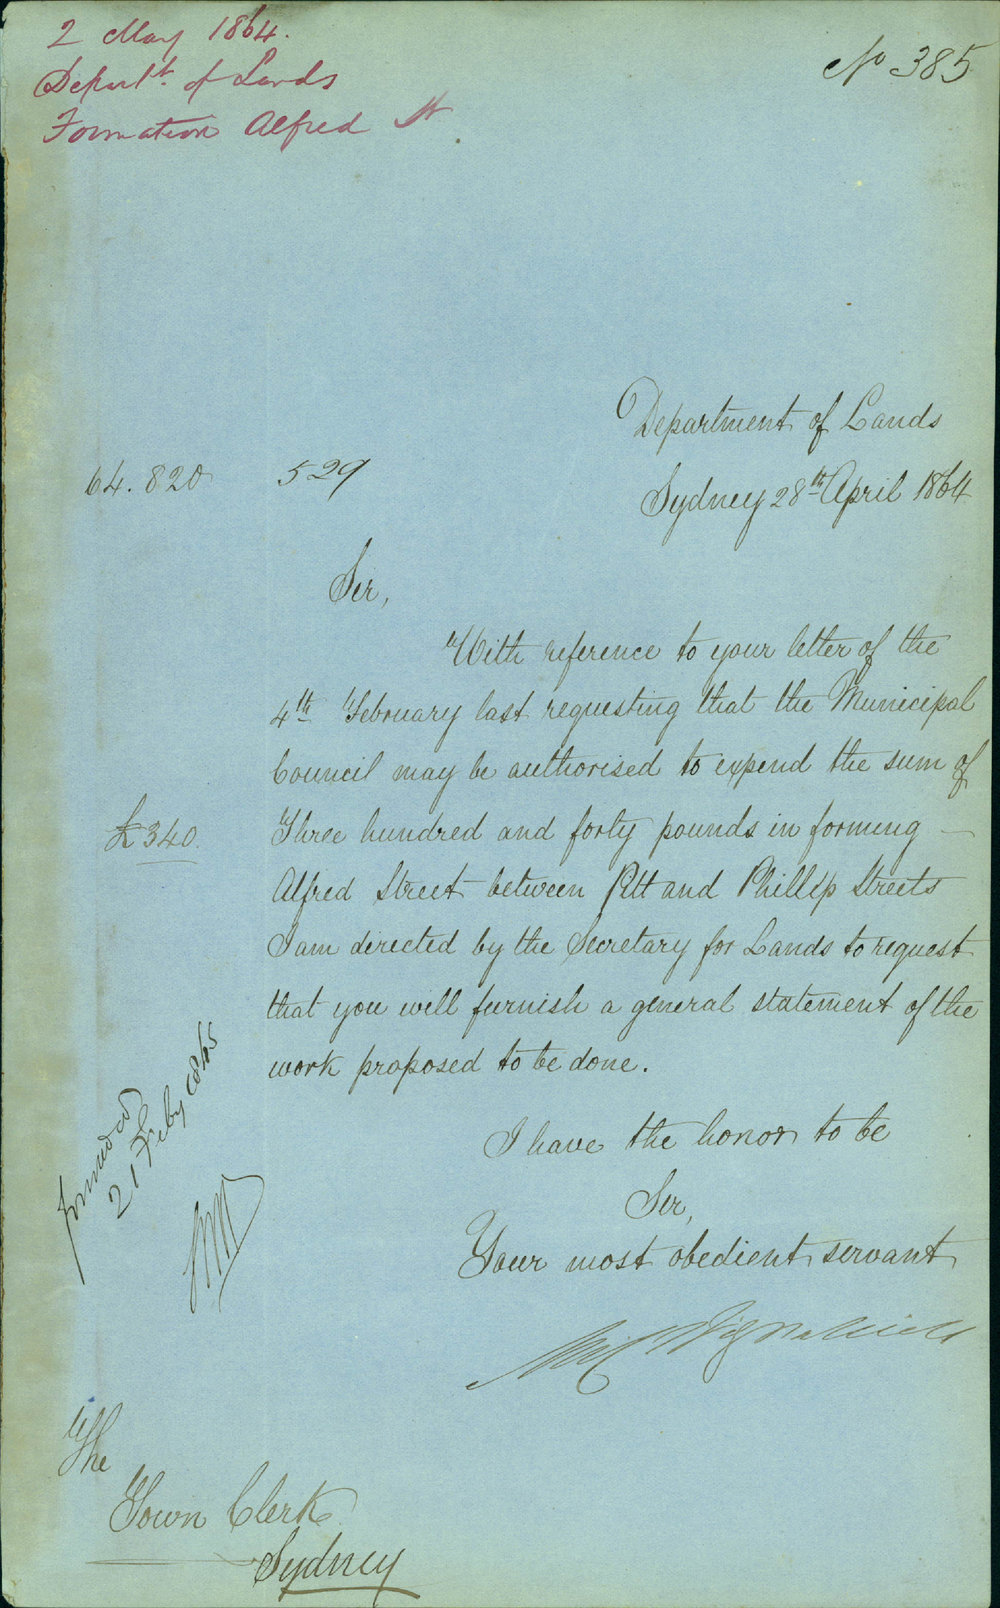 2 May 1864.
Depart.t of Lands
Formation Alfred St
No 385
Department of Lands
64.820 529
Sydney 28th April 1864
Sir,
With reference to your letter of the
4th February last requesting that the Municipal
Council may be authorised to expend the sum of
£340. Three hundred and forty pounds in forming
Alfred Street between Pitt and Phillip Streets
I am directed by the Secretary for Lands to request
that you will furnish a general statement of the
work proposed to be done.
21 Feby 1865
I have the honor to be
Sir,
Your most obedient servant
The
Town Clerk
Sydney